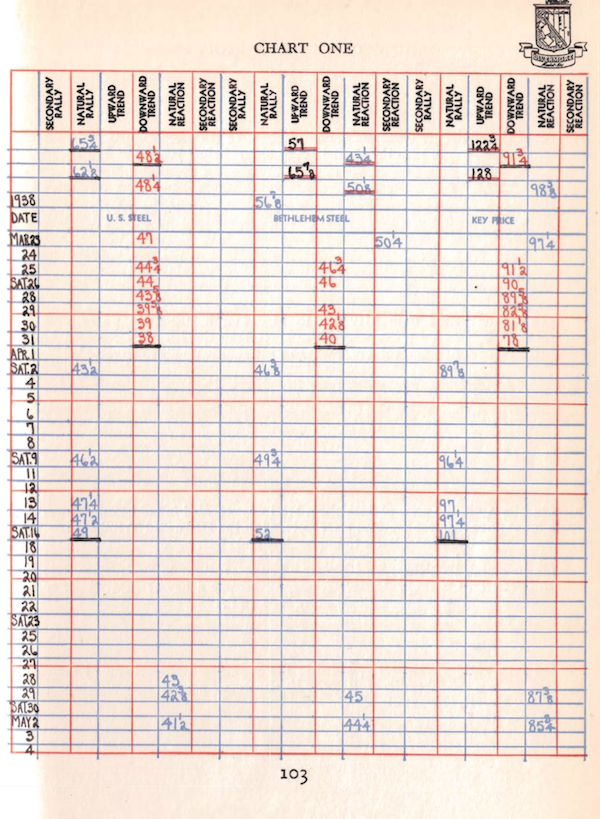 CHART ONE
SECONDARY RALLY NATURAL RALLY UPWARD TREND DOWNWARD TREND NATURAL REACTION SECONDARY REACTION SECONDARY RALLY NATURAL RALLY UPWARD TREND DOWNWARD TREND NATURAL REACTION SECONDARY REACTION SECONDARY RALLY NATURAL RALLY UPWARD TREND DOWNWARD TREND NATURAL REACTION SECONDARY REACTION
65¾ 57 122¾
48½ 43¼ 91¾
62⅛ 65⅞ 128
48¼ 50⅛ 98⅜
1938 56⅞
DATE U. S. STEEL BETHLEHEM STEEL KEY PRICE
MAR23 47 50¼ 97¼
24
25 44¾ 46¾ 91½
SAT.26 44 46 90
28 43⅝ 89⅝
29 39⅝ 43 82⅝
30 39 42⅛ 81⅛
31 38 40 78
APR.1
SAT.2 43½ 46⅜ 89⅞
4
5
6
7
8
SAT.9 46½ 49¾ 96¼
11
12
13 47¼ 97
14 47½ 97¼
SAT.16 49 52 101
18
19
20
21
22
SAT.23
25
26
27
28 43
29 42⅜ 45 87⅜
SAT.30
MAY 2 41½ 44¼ 85¾
3
4
103